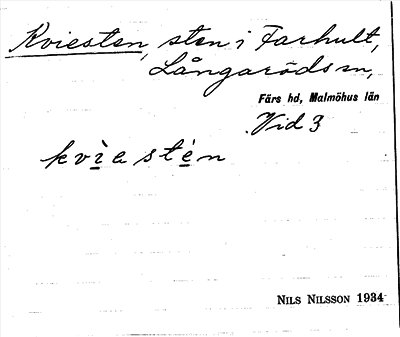 Kviesten, sten i Farhult,
Långaröds sn,
Färs hd, Malmöhus län
Vid 3
kvìestén
NILS NILSSON 1934